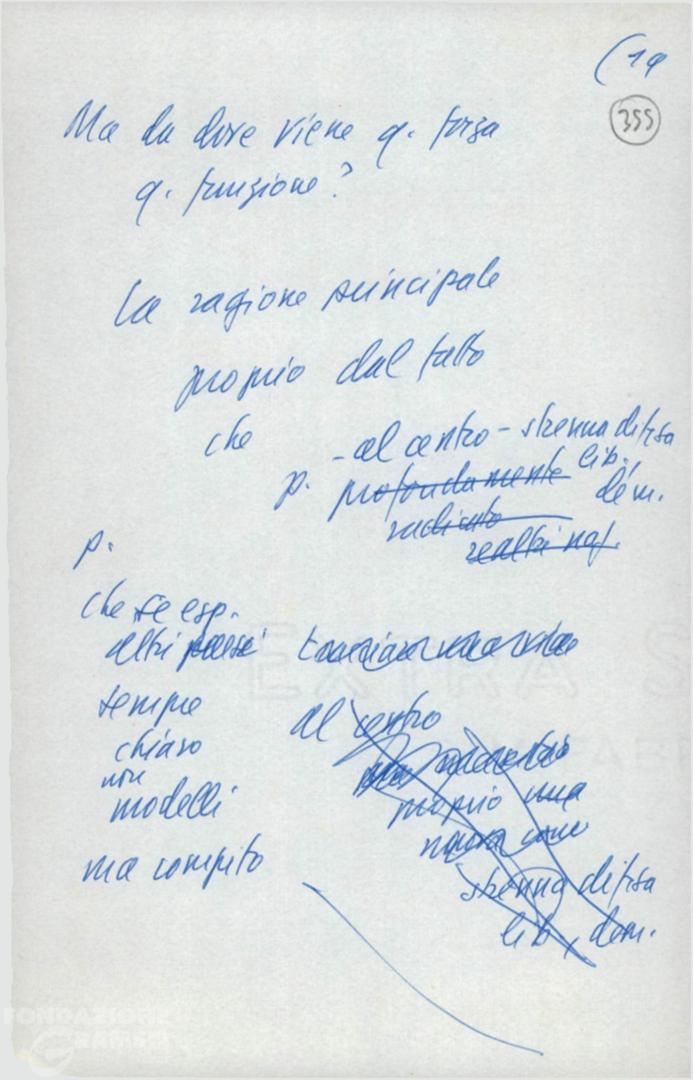 (19
355
Ma da dove viene q. forza
q. funzione?
La ragione principale
proprio dal fatto
che
- al centro - strenua difesa
lib.
p. profondamente dem.
radicato
p.
che se esp.
altri paesi
sempre
chiaro
non
modelli
ma compito
al centro
proprio una
nuova
strenua difesa
lib, dem.
EXTRA S
FABR
FONDAZIONE
GRAMSCI